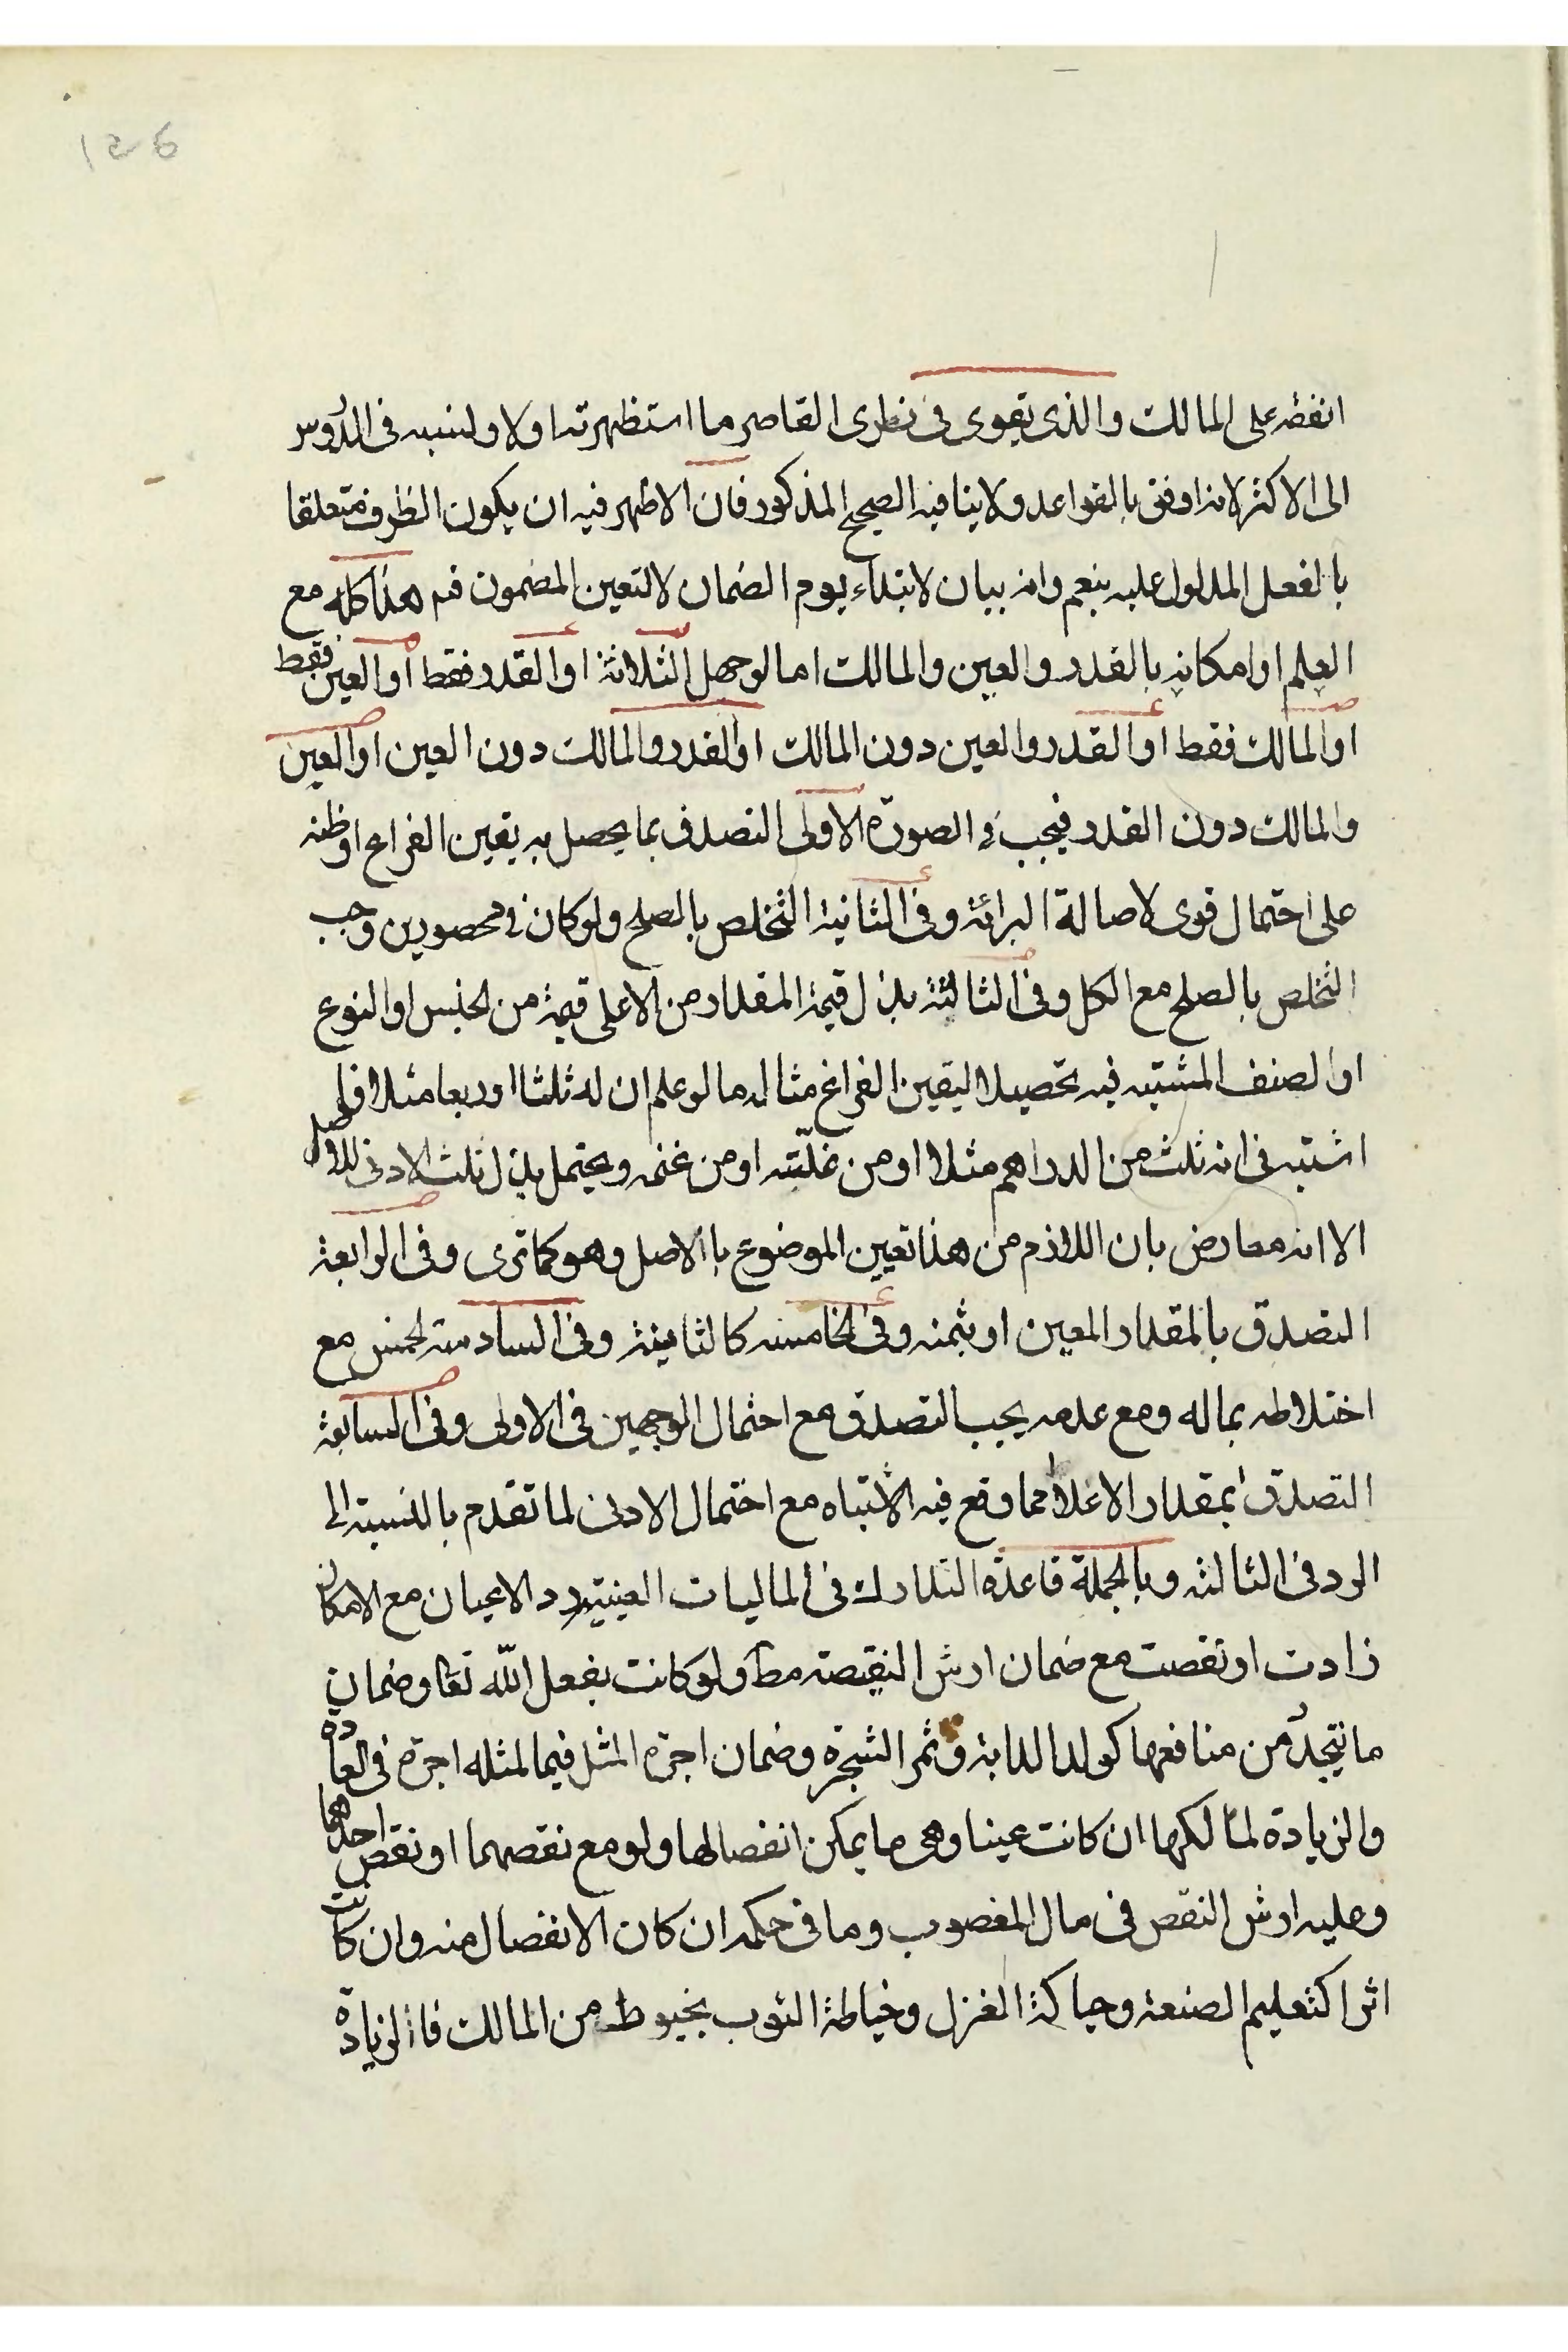 126
انفقه على المالك والذى يقوى فى نظرى القاصر ما استظهرته اولا ونسبه فى الدروس
الى الاكثر لانه اوفق بالقواعد ولا ينافيه الصحيح المذكور فان الاظهر فيه ان يكون الظرف متعلقا
بالفعل المدلول عليه بنعم وانه بيان لابتداء يوم الضمان لا لتعين المضمون فيه هذا كله مع
العلم او امكانه بالقدر والعين والمالك اما لو جهل الثلاثة او القدر فقط او العين فقط
او المالك فقط او القدر والعين دون المالك او القدر والمالك دون العين او العين
والمالك دون القدر فيجب فى الصورة الاولى التصدق بما يحصل به يقين الفراغ او ظنه
على احتمال قوى لاصالة البرائة وفى الثانية التخلص بالصلح ولو كان فى محصورين وجب
التخلص بالصلح مع الكل وفى الثالثة بذل قيمة المقدار من الاعلى قيمة من الجنس او النوع
او الصنف المشتبه فيه تحصيلا ليقين الفراغ مثاله ما لو علم ان له ثلثا او ربعا مثلا
اشتبه فى انه ثلث من الدراهم مثلا او من غلته او من غنمه ويحتمل بذل ثلث الادنى للاصل
الا انه معارض بان اللازم من هذا تعيين الموضوع بالاصل وهو كما ترى وفى الرابعة
التصدق بالمقدار المعين او بثمنه وفى الخامسة كالثانية وفى السادسة لخمس مع
اختلاطه بماله ومع عدمه يجب التصدق مع احتمال الوجهين فى الاولى وفى السابعة
التصدق بمقدار الاعلا مما وقع فيه الاشتباه مع احتمال الادنى لما تقدم بالنسبة الى
الرد فى الثالثة وبالجملة قاعدة التدارك فى الماليات العينية رد الاعيان مع الامكان
زادت او نقصت مع ضمان ارش النقيصة مط ولو كانت بفعل الله تعا وضمان
ما يتجدد من منافعها كولد الدابة وثمر الشجرة وضمان اجرة المثل فيما لمثله اجرة فى العادة
والزيادة لمالكها ان كانت عينا وهى ما يمكن انفصالها ولو مع نقصهما او نقص احدهما
وعليه ارش النقص فى مال المغصوب وما فى حكمه ان كان الانفصال منه وان كانت
اثرا كتعليم الصنعة وحياكة الغزل وخياطة الثوب بخيوط من المالك فالزيادة